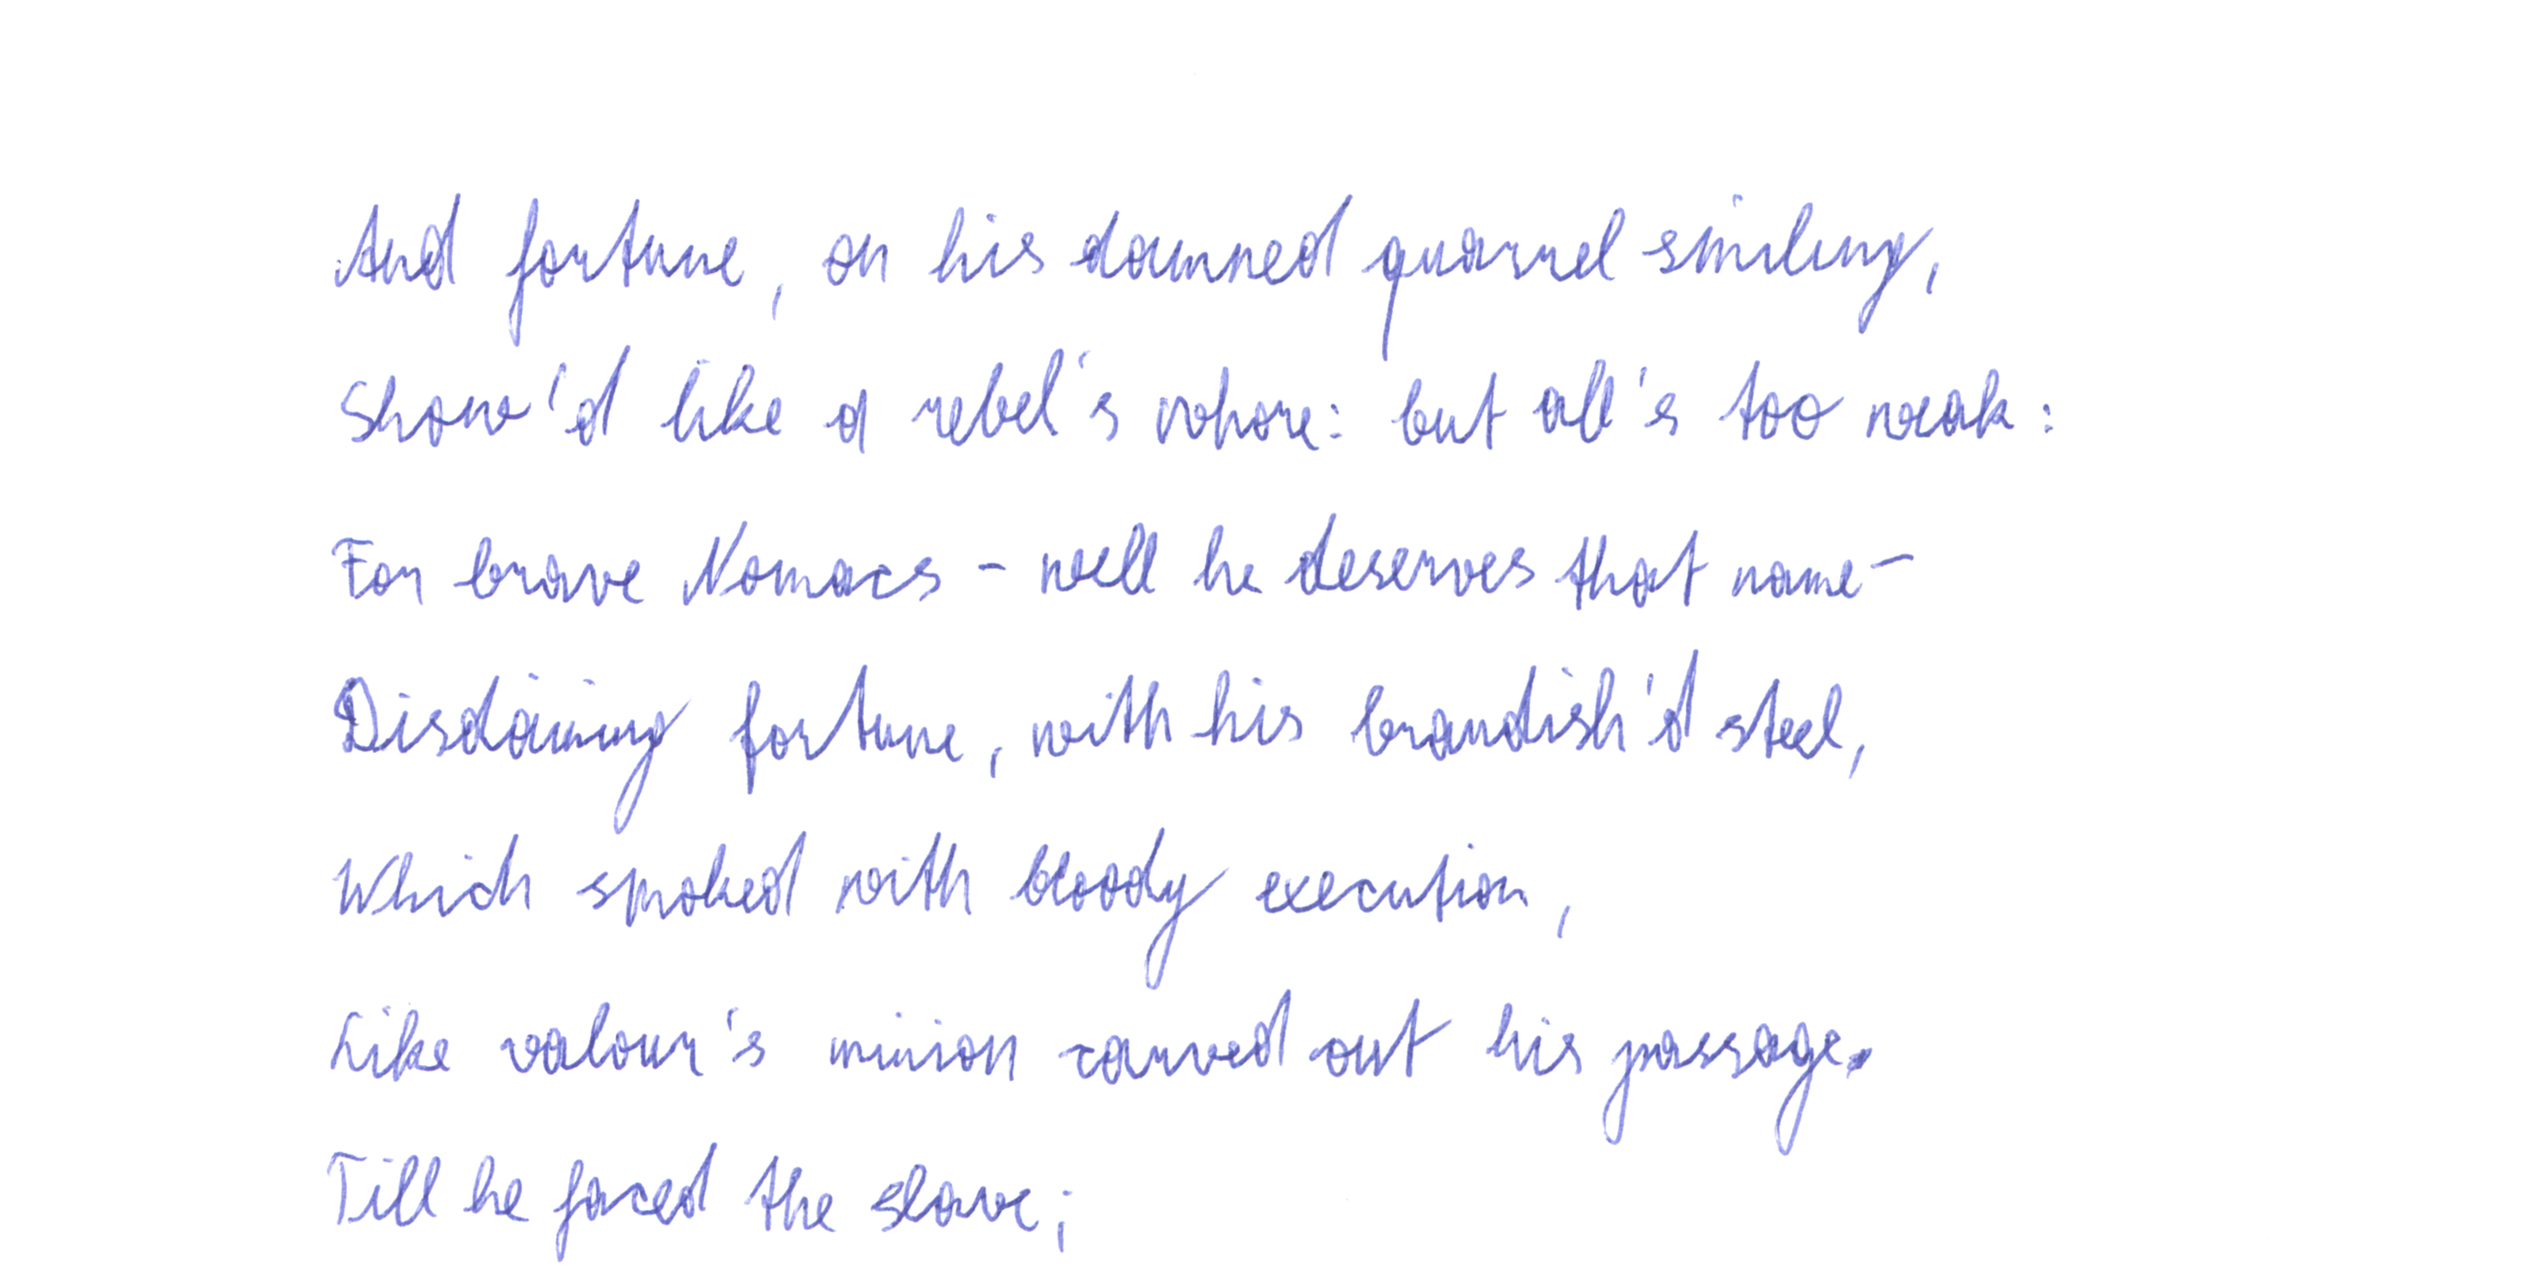 And fortune, on his damned quarrel smiling,
Show'd like a rebel's whore: but all's too weak:
For brave Nomacs - well he deserves that name-
Disdaining fortune, with his brandish'd steel,
Which smoked with bloody execution,
Like valour's minion carved out his passage.
Till he faced the slave;